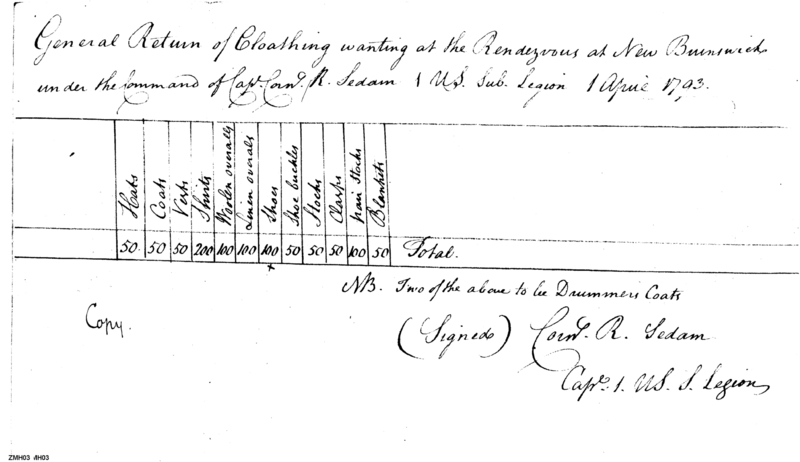 General Return of Cloathing wanting at the Rendezvous at New Brunswick
under the Command of Capt. Corns. R. Sedam 1 US. Sub. Legion 1 April 1793.
Hats Coats Vests Shirts Woolen overalls Linen overals Shoes Shoe buckles Stocks Clasps hair Stocks Blankets
50 50 50 200 100 100 100 50 50 50 100 50 Total.
x
NB. Two of the above to be Drummers Coats
Copy.
(Signed) Corns. R. Sedam
Capt. 1. US. S. Legion
ZMH03 MH03